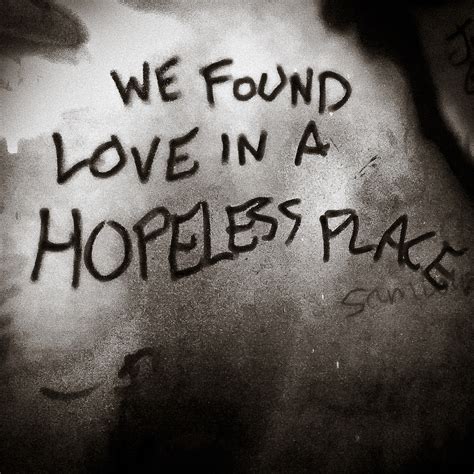 WE FOUND
LOVE IN A
HOPELESS PLACE